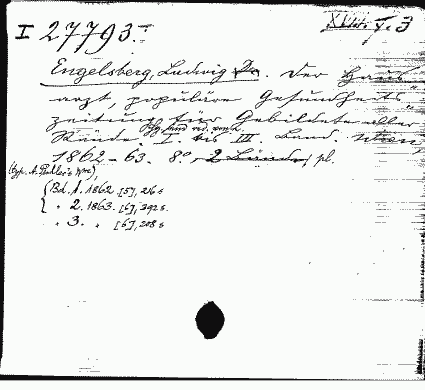 I 27793.-I
X V. 3
Engelsberg, Ludwig Dr. Der Haus-
arzt, populäre Gesundheits-
zeitung für Gebildete aller
Stände. I. bis III. Band. Wien,
1862-63. 8°, 2 Bände, pl.
Bd. 1. 1862. [5], 216 s
" 2. 1863. [6], 392 s.
" 3. " [6], 208 s